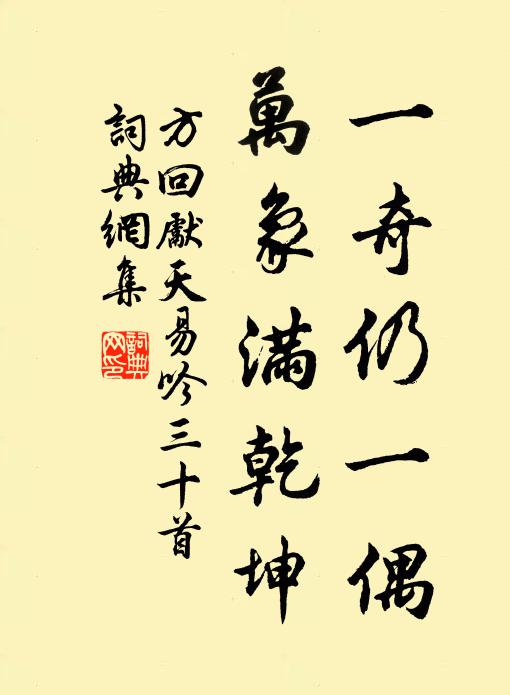 一奇仍一偶
萬象滿乾坤
方回獻天易吟三十首
詞典網集
詞典網印